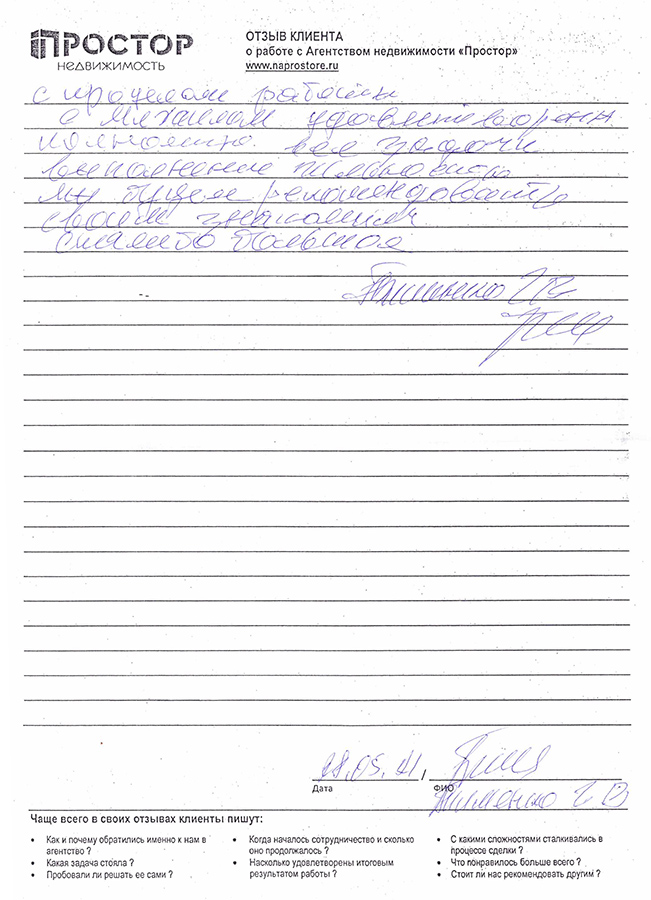 ПРОСТОР
НЕДВИЖИМОСТЬ
ОТЗЫВ КЛИЕНТА
о работе с Агентством недвижимости «Простор»
www.naprostore.ru
работы
с Михаилом удовлетворен
полностью. все задачи
выполнены полностью
мы будем рекомендовать
своим знакомым
спасибо большое
Дата
/
ФИО
Чаще всего в своих отзывах клиенты пишут:
• Как и почему обратились именно к нам в
агентство ?
• Какая задача стояла ?
• Пробовали ли решать ее сами ?
• Когда началось сотрудничество и сколько
оно продолжалось ?
• Насколько удовлетворены итоговым
результатом работы ?
• С какими сложностями сталкивались в
процессе сделки ?
• Что понравилось больше всего ?
• Стоит ли нас рекомендовать другим ?